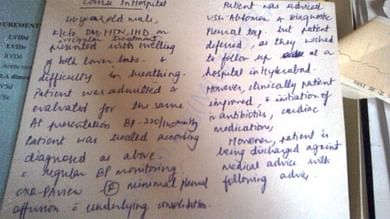 Course In Hospital
year old male,
K/c/o DM, HTN, IHD on
regular treatment
presented with swelling
of both lower limbs &
difficulty in breathing.
Patient was admitted &
evaluated for the same
At presentation BP - 220/ mmHg
Patient was treated according
diagnosed as above.
regular BP monitoring.
CXR-PA view minimal pleural
effusion underlying consolidation.
Patient was advised
USG Abdomen & Diagnostic
Pleural tap. but patient
deferred, as they wished
to follow up at a
hospital in Hyderabad.
However, clinically patient
improved, initiation of
antibiotics, cardiac
medications,
Moreover, patient is
being discharged against
medical advice with
following advice,
LVDs